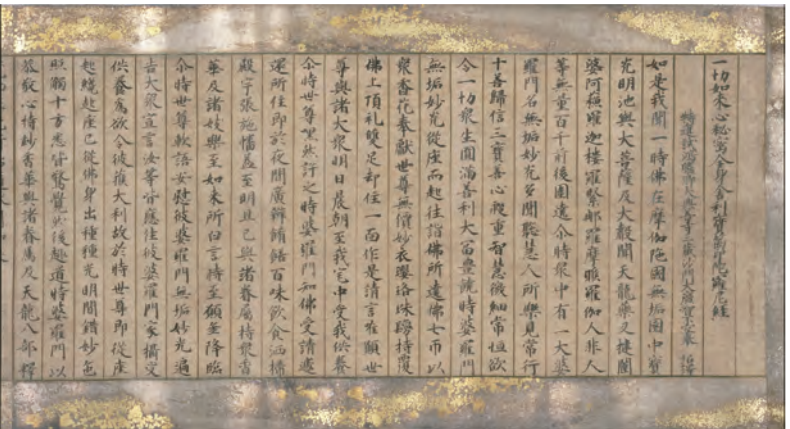 一切如来心秘密全身舍利寶篋印陁羅尼經
特進試鴻臚卿大興善寺三藏沙門大廣智不空奉 詔譯
如是我聞一時佛在摩伽陁國無垢園中寶
光明池與大菩薩及大聲聞天龍藥叉揵闥
婆阿蘓羅迦樓羅緊那羅摩睺羅伽人非人
等無量百千前後圍遶尒時衆中有一大婆
羅門名無垢妙光多聞聡慧人所樂見常行
十善歸信三寶善心殷重智慧微細常恒欲
令一切衆生圓滿善利大冨豊饒時婆羅門
無垢妙光從座而起往詣佛所遶佛七帀以
衆香花奉獻世尊無價妙衣瓔珞珠鬘持覆
佛上頂礼雙足却住一面作是請言唯願世
尊與諸大衆明日晨朝至我宅中受我供養
尒時世尊默然許之時婆羅門知佛受請遽
還所住即於夜間廣辦餚饍百味飲食洒掃
殿宇張施幡盖至明旦已與諸眷屬持衆香
華及諸妓樂至如来所白言時至願垂降臨
尒時世尊軟語安慰彼婆羅門無垢妙光遍
告大衆宣言汝等皆應往彼婆羅門家攝受
供養為欲令彼獲大利故於時世尊即從座
起纔起座已從佛身出種種光明間錯妙色
照觸十方悉皆警覺然後趣道時婆羅門以
恭敬心持妙香華與諸眷属及天龍八部釋